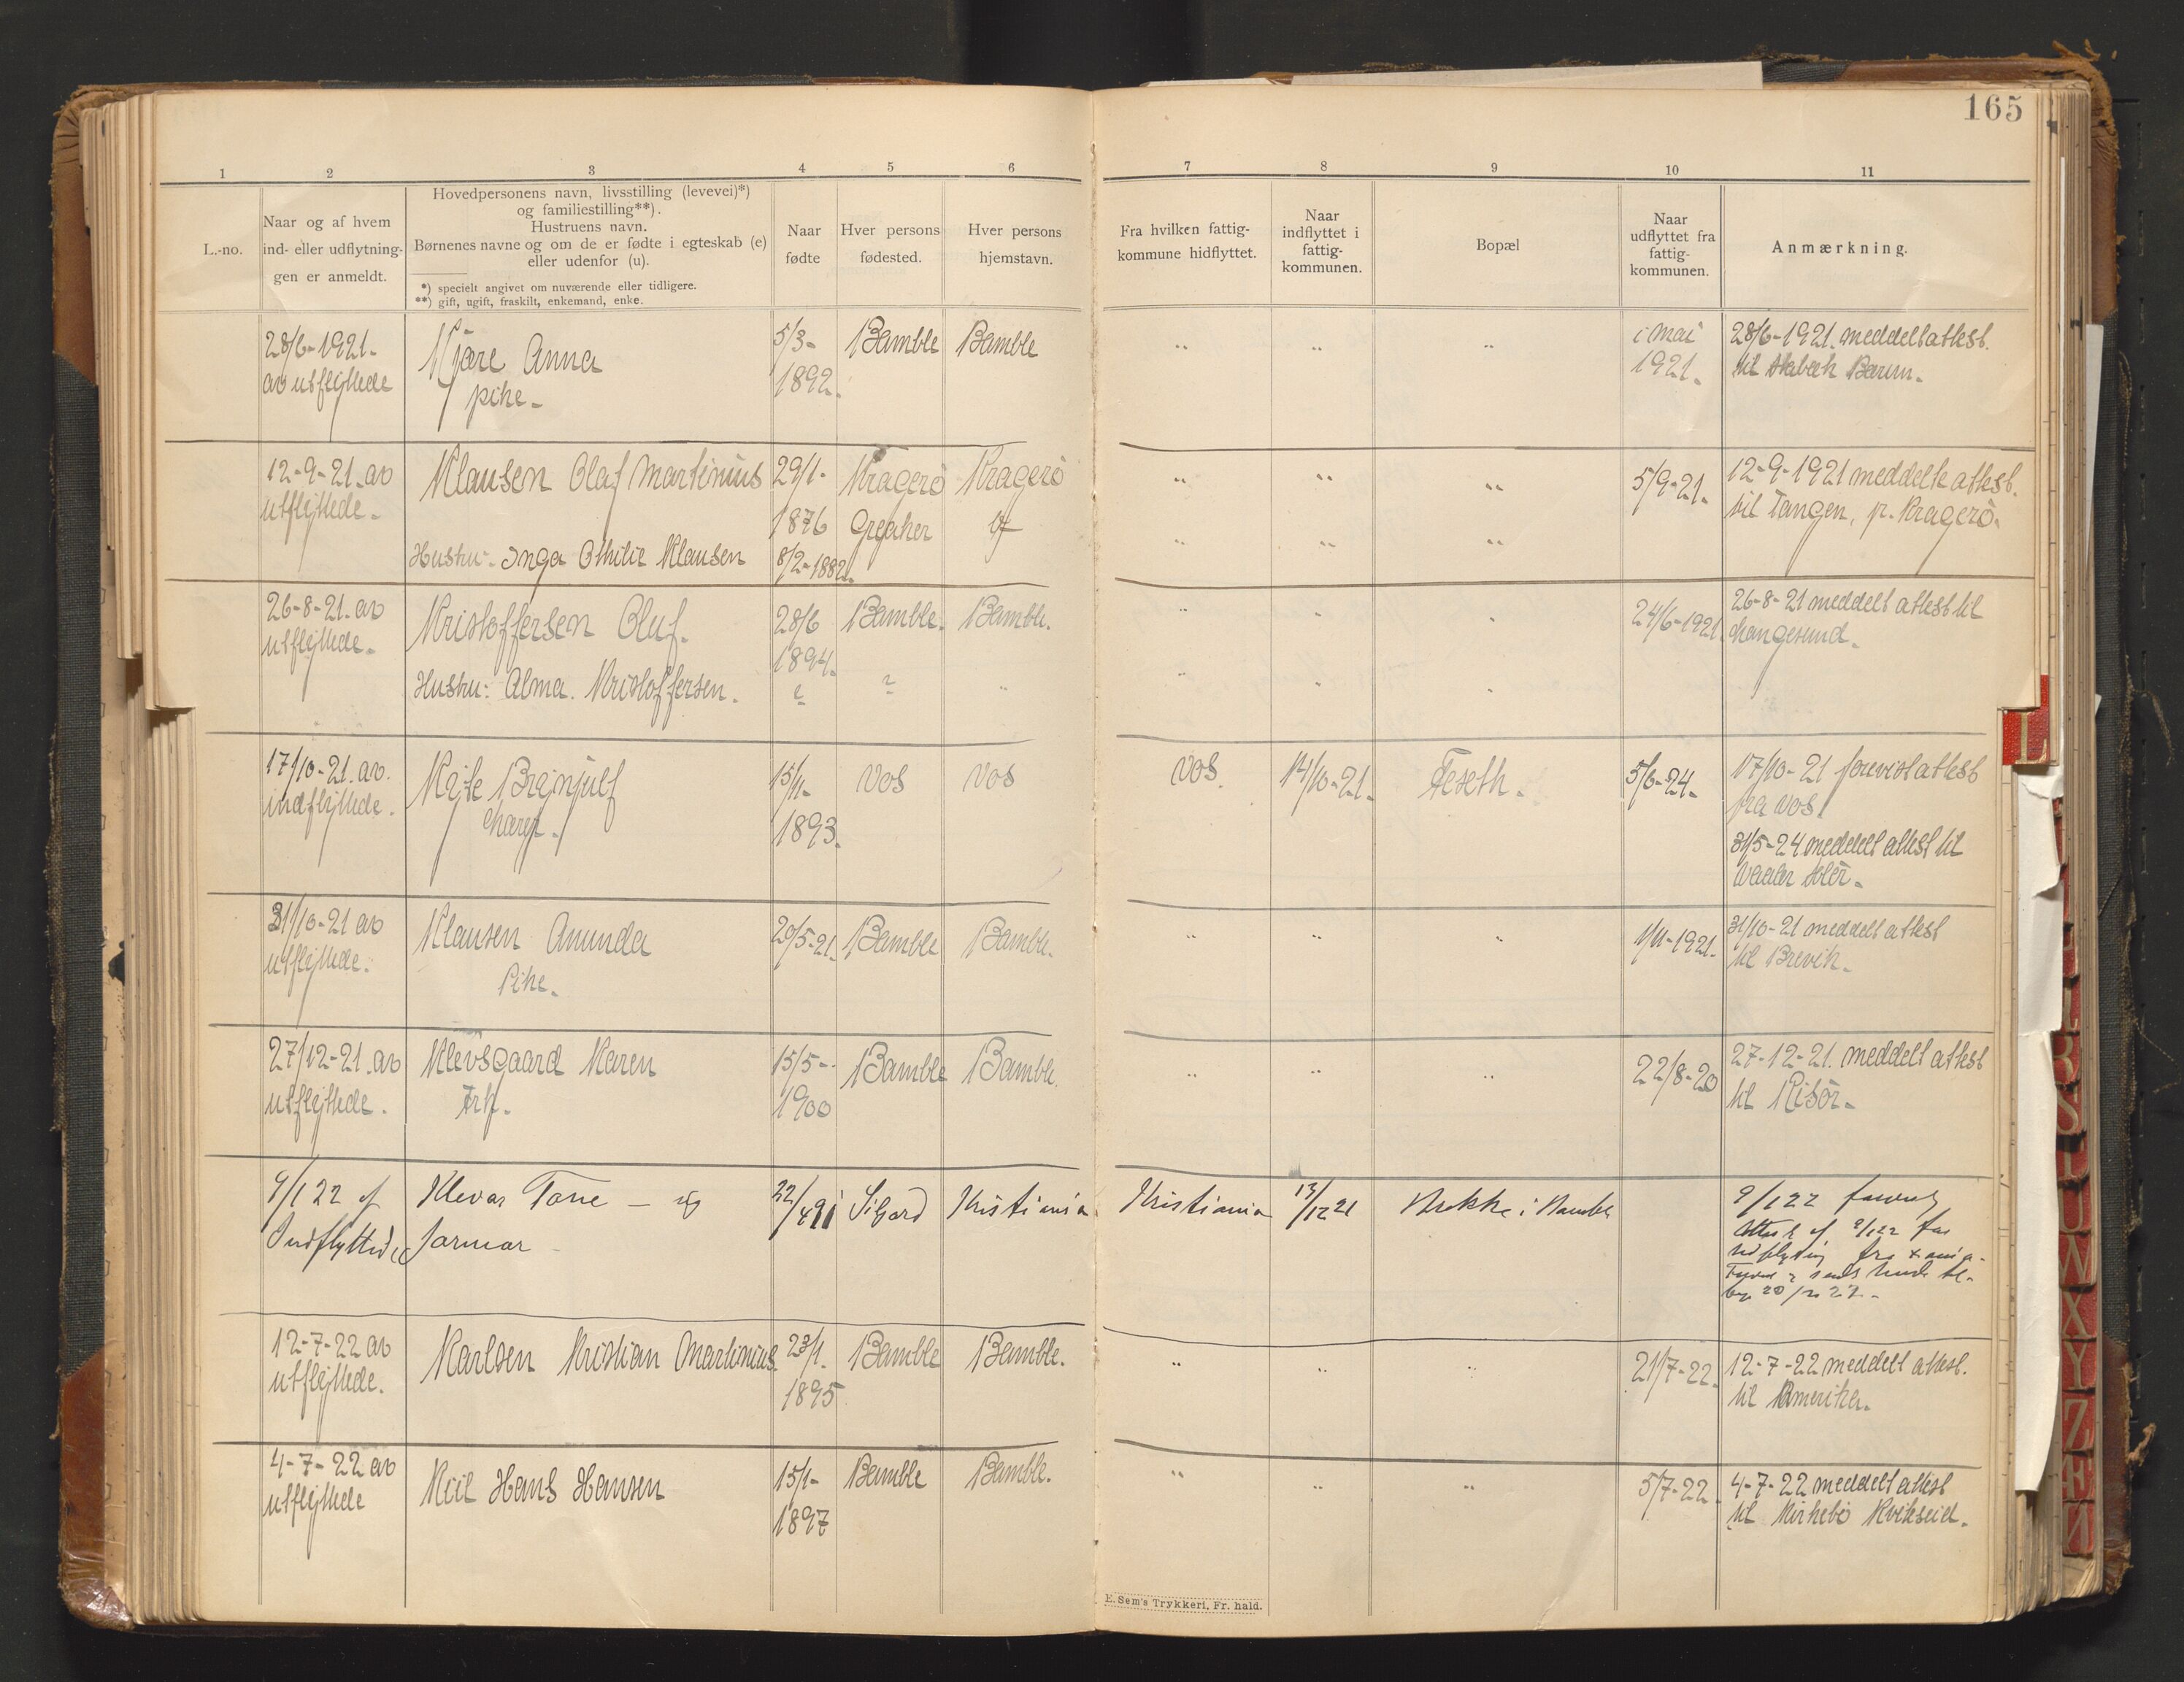 165
1 2 3 4 5 6 7 8 9 10 11
L.-no.
Naar og af hvem
ind- eller udflytning-
gen er anmeldt.
Hovedpersonens navn, livsstilling (levevei)*)
og familiestilling**).
Hustruens navn.
Børnenes navne og om de er fødte i egteskab (e)
eller udenfor (u).
*) specielt angivet om nuværende eller tidligere.
**) gift, ugift, fraskilt, enkemand, enke.
Naar
fødte
Hver persons
fødested.
Hver persons
hjemstavn.
Fra hvilken fattig-
kommune hidflyttet.
Naar
indflyttet i
fattig-
kommunen.
Bopæl
Naar
udflyttet fra
fattig-
kommunen.
Anmærkning.
28/6-1921-
av utflyttede
Kjøre Anna
pike-
5/3-
1892-
Bamble
Bamble
" " "
i mai
1921-
28/6-1921. meddelt attest.
til Stabæk Bærum-
12-9-21. av
utflyttede-
Klausen Olaf Martinius
Hustru- Inga Othilie Klausen
29/1-
1876
8/2-1882-
Kragerö
Greaker
Kragerö
" " "
" " "
5/9-21-
12-9-1921 meddelt attest.
til Tangen, pr. Kragerö-
26-8-21. av
utflyttede-
Kristoffersen Oluf.
Hustru: Alma. Kristoffersen.
28/6
1894-
?
Bamble.
?
Bamble.
"
" " "
" " "
24/6-1921
26-8-21 meddelt attest til
Langesund-
17/10-21. av.
indflyttede.
Kyte Brynjulf
15/11-
1893-
Vos
Vos
Vos.
14/10-21-
Feseth-
5/6-24-
17/10-21 forevist attest
fra Vos.
31/5-24 meddelt attest til
Vaaler Solör-
31/10-21 av
utflyttede.
Klausen Amunda
Pike-
20/5-21-
Bamble
Bamble.
" " "
1/11-1921-
31/10-21 meddelt attest
til Brevik-
27/12-21. av
utflyttede.
Klevsgaard Karen
Frk.
15/5-
1900
Bamble
Bamble.
" " "
22/8-20
27-12-21. meddelt attest
til Risör-
9/1 22 af
Indflyttede
Klevar Tone -
22/4 91
Siljord
Kristiania
Kristiania
13/12 21
Bakke i Bamble
9/1 22
Attest af 9/1 22 for
fra
12-7-22 av
utflyttede.
Karlsen Kristian Martinius
23/1-
1895
Bamble
Bamble.
" " "
21/7-22-
12-7-22 meddelt attest.
til Amerika-
4-7-22 av
utflyttede
Kiil Hans Hansen
15/1-
1897
Bamble
Bamble.
" " "
5/7-22.
4-7-22 meddelt attest
til Kirkebö Kviteseid-
E. Sem's Trykkeri, Fr. hald.
L
W
X
Y
Z
Æ